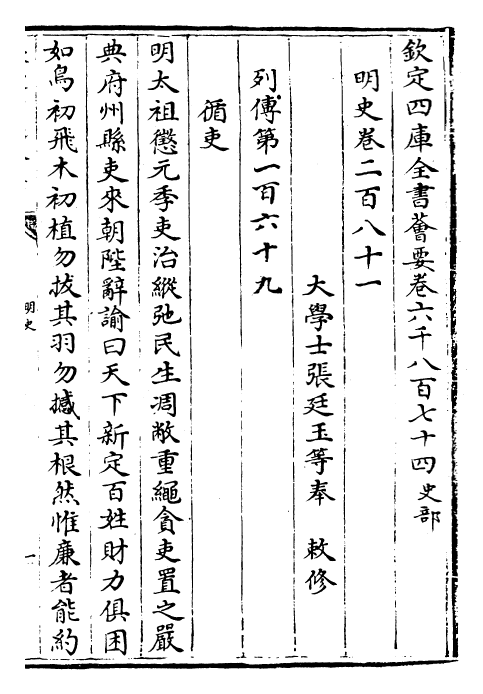 欽定四庫全書薈要卷六千八百七十四史部
明史卷二百八十一
大學士張廷玉等奉 敕修
列傳第一百六十九
循吏
明太祖懲元季吏治縱弛民生凋敝重繩貪吏置之嚴
典府州縣吏來朝陛辭諭曰天下新定百姓財力俱困
如鳥初飛木初植勿拔其羽勿撼其根然惟廉者能約
明史
一